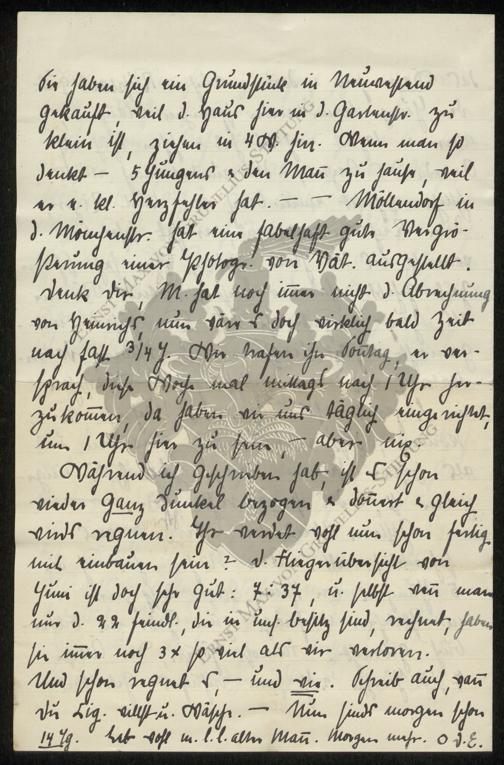 Sie haben sich ein Grundstück in Neuwestend
gekauft, weil d. Haus hier in d. Gartenstr. zu
klein ist, ziehen in 4 W. hin. Wenn man so
denkt — 5 Jungens u den Mañ zu hause, weil
er e. kl. Herzfehler hat. — — Möllendorf in
d. Mönchenstr. hat eine fabelhaft gute Vergrö-
sserung einer Photogr. von Vät. ausgestellt.
Denk dir, M. hat noch im̃er nicht d. Abrechnung
von Heinrichs nun wäre s doch wirklich bald Zeit
nach fast 3/4 J. Wir trafen ihn Sontag, er ver-
sprach, diese Woche mal mittags nach 1 Uhr her-
zukom̃en, da haben wir uns täglich eingerichtet,
um 1 Uhr hier zu sein, — aber nix.
Während ich geschrieben hab, ist s schon
wieder ganz dunkel bezogen u doñert u gleich
wirds regnen. Ihr werdet wohl nun schon fertig
mit einbauen sein? d. Fliegerübersicht von
Juni ist doch sehr gut: 7:37, u. selbst weñ man
nur d. 22 feindl., die in uns. besitz sind, rechnet, haben
sie im̃er noch 3x so viel als wir verloren.
Und schon regnet s, — und wie. Schreib auch, wañ
du Zig. willst u. Wäsche. — Nun sinds morgen schon
14 Tg. Leb wohl m. l. l. alter Mañ. Morgen mehr. O d. E.
ERNST MAX VON GRAEFE STIFTUNG